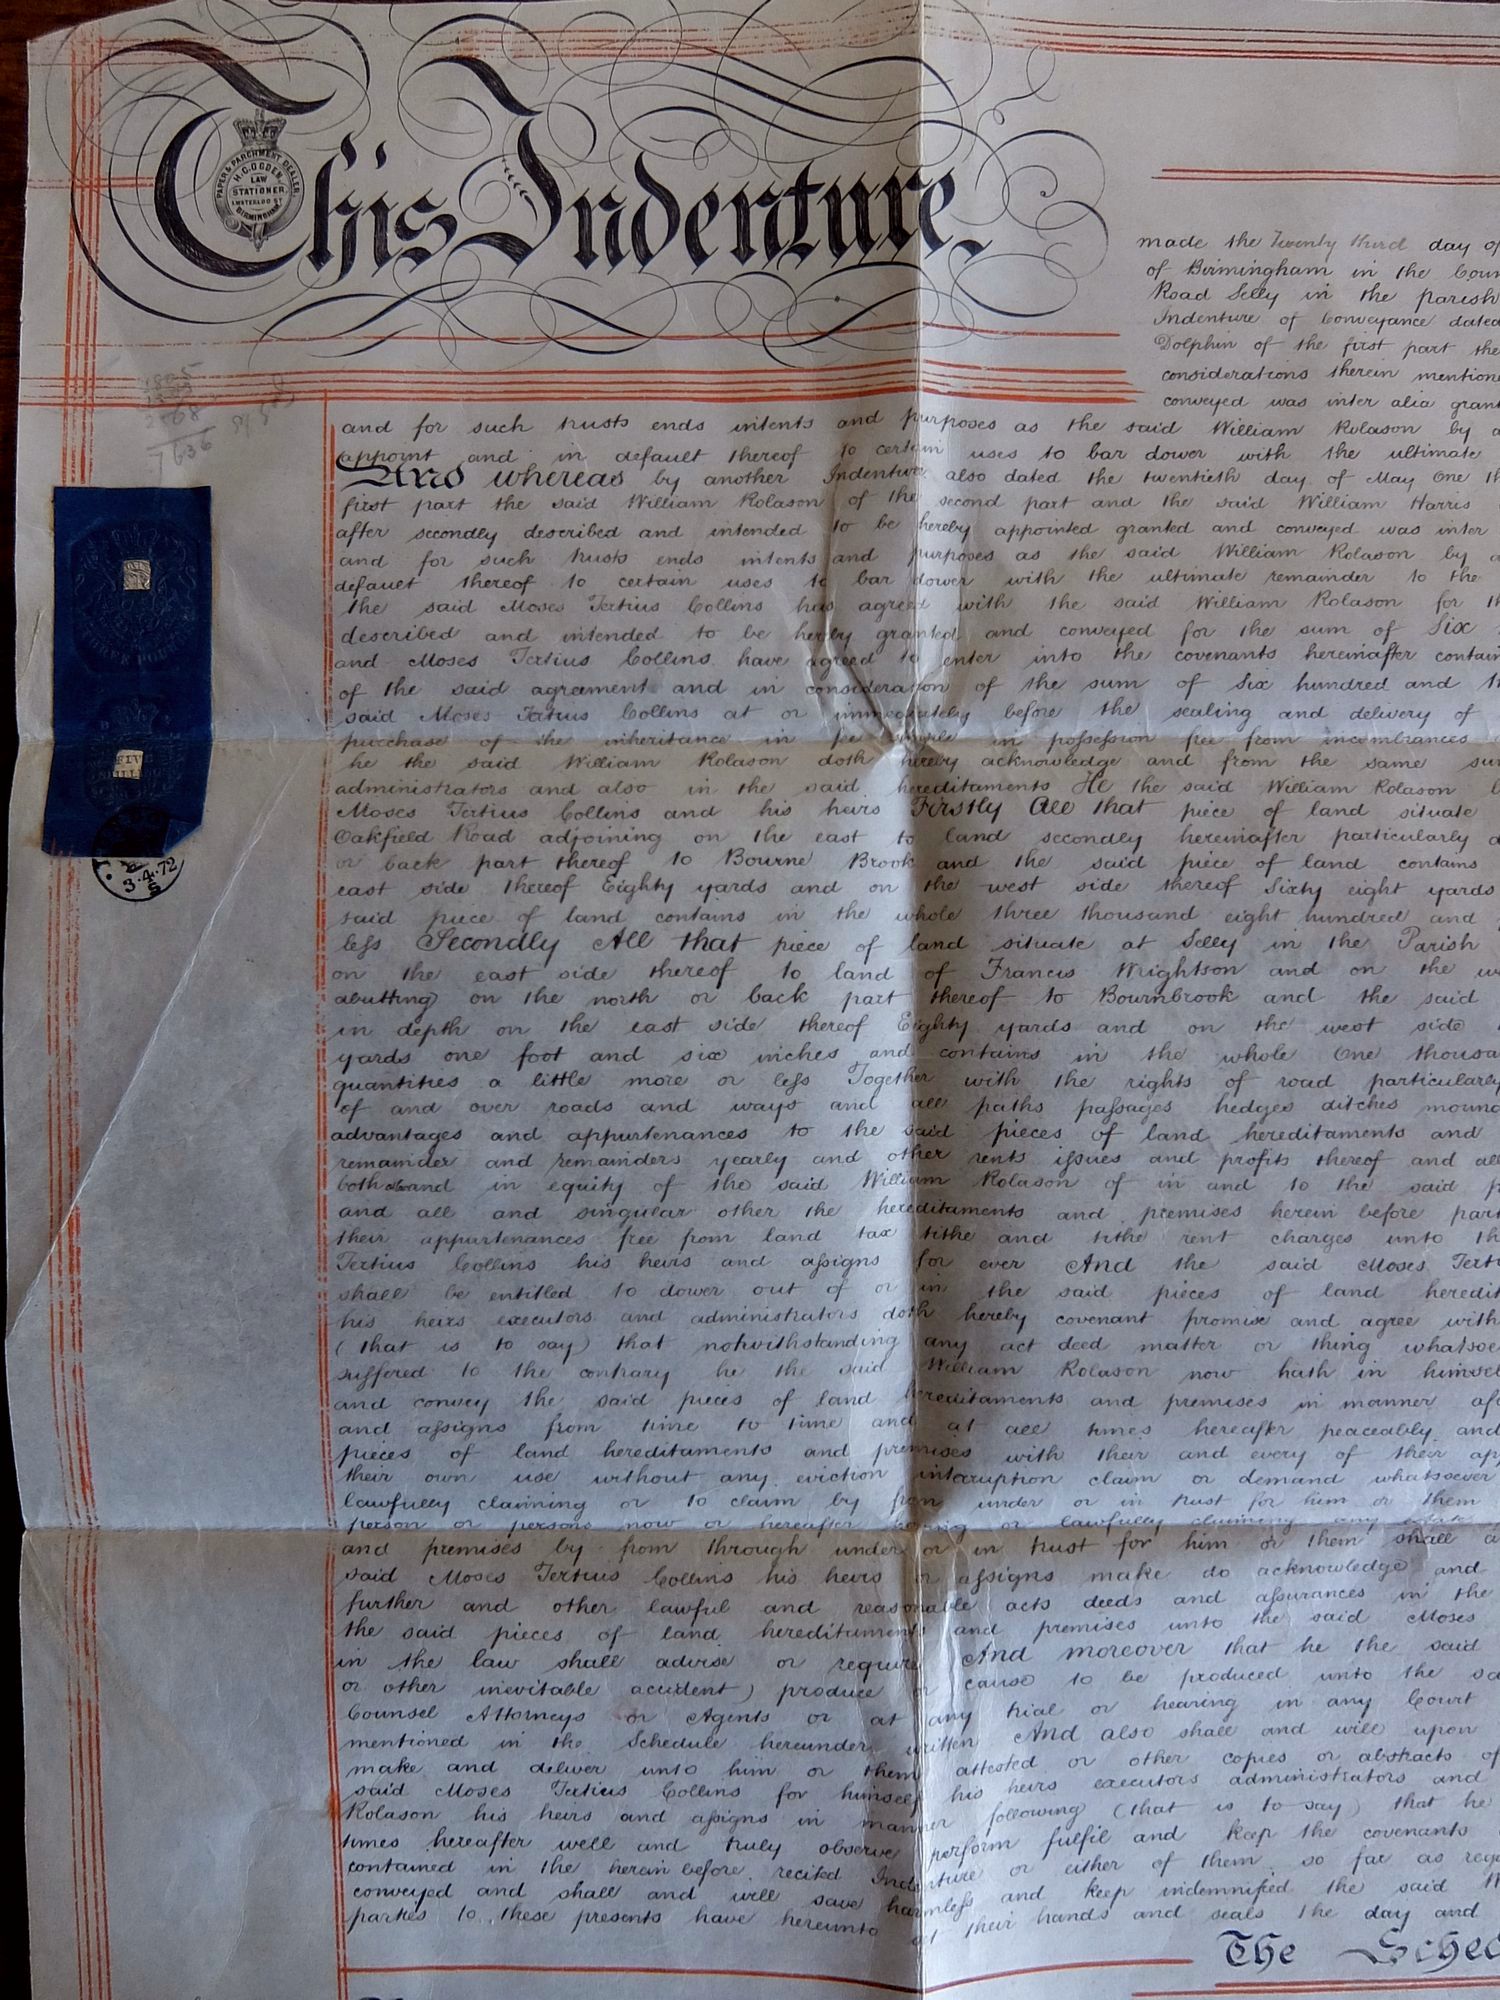 This Indenture
PAPER & PARCHMENT DEALER
H.C. OGDEN
LAW
STATIONER
1 WATERLOO ST
BIRMINGHAM
made the Twenty third day of
of Birmingham in the Coun
Road Selly in the parish
Indenture of Conveyance dated
Dolphin of the first part the
considerations therein mentione
conveyed was inter alia grant
and for such trusts ends intents and purposes as the said William Rolason by
appoint and in default thereof to certain uses to bar dower with the ultimate
And whereas by another Indenture also dated the twentieth day of May One th
first part the said William Rolason of the second part and the said William Harris
after secondly described and intended to be hereby appointed granted and conveyed was inter
and for such trusts ends intents and purposes as the said William Rolason by
default thereof to certain uses to bar dower with the ultimate remainder to the
the said Moses Tertius Collins has agreed with the said William Rolason for th
described and intended to be hereby granted and conveyed for the sum of Six
and Moses Tertius Collins have agreed to enter into the covenants hereinafter contain
of the said agreement and in consideration of the sum of Six hundred and
said Moses Tertius Collins at or immediately before the sealing and delivery of
purchase of the inheritance in fee simple in possession free from incumbrances
he the said William Rolason doth hereby acknowledge and from the same
administrators and also in the said hereditaments He the said William Rolason
Moses Tertius Collins and his heirs Firstly All that piece of land situate
Oakfield Road adjoining on the east to land secondly hereinafter particularly
or back part thereof to Bourne Brook and the said piece of land contains
east side thereof Eighty yards and on the west side thereof Sixty eight yards
said piece of land contains in the whole three thousand eight hundred and
less Secondly All that piece of land situate at Selly in the Parish
on the east side thereof to land of Francis Wrightson and on the
abutting on the north or back part thereof to Bournbrook and the said
in depth on the east side thereof Eighty yards and on the west side
yards one foot and six inches and contains in the whole One thousa
quantities a little more or less Together with the rights of road particularly
of and over roads and ways and all paths passages hedges ditches moun
advantages and appurtenances to the said pieces of land hereditaments and
remainder and remainders yearly and other rents issues and profits thereof and all
both and in equity of the said William Rolason of in and to the said
and all and singular other the hereditaments and premises herein before part
their appurtenances free from land tax tithe and tithe rent charges unto th
Tertius Collins his heirs and assigns for ever And the said Moses Tert
shall be entitled to dower out of or in the said pieces of land heredit
his heirs executors and administrators doth hereby covenant promise and agree with
(that is to say) that notwithstanding any act deed matter or thing whatsoe
suffered to the contrary he the said William Rolason now hath in himsel
and convey the said pieces of land hereditaments and premises in manner
and assigns from time to time and at all times hereafter peaceably and
pieces of land hereditaments and premises with their and every of their
their own use without any eviction interruption claim or demand whatsoever
lawfully claiming or to claim by from under or in trust for him or them
person or persons now or hereafter having or lawfully claiming any estate
and premises by from through under or in trust for him or them shall
said Moses Tertius Collins his heirs or assigns make do acknowledge and
further and other lawful and reasonable acts deeds and assurances in the
the said pieces of land hereditaments and premises unto the said Moses
in the law shall advise or require And moreover that he the said
or other inevitable accident) produce or cause to be produced unto the
Counsel Attorneys or Agents or at any trial or hearing in any Court
mentioned in the Schedule hereunder written And also shall and will upon
make and deliver unto him or them attested or other copies or abstracts of
said Moses Tertius Collins for himself his heirs executors administrators and
Rolason his heirs and assigns in manner following (that is to say) that he
times hereafter well and truly observe perform fulfil and keep the covenants
contained in the herein before recited Indenture or either of them so far as
conveyed and shall and will save harmless and keep indemnified the said
parties to these presents have hereunto set their hands and seals the day and
The Sched
THREE POUNDS
FIVE
SHILLINGS
3.4.72